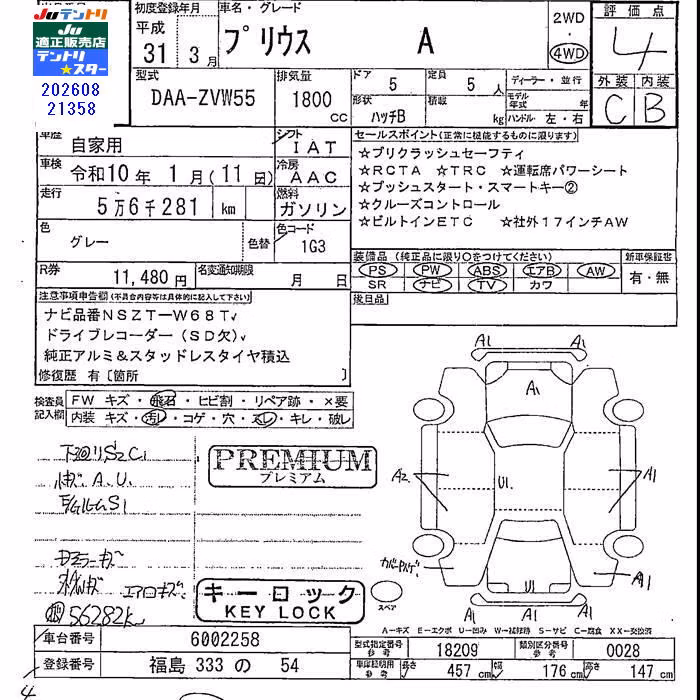 Juテントリ
Ju
適正販売店
テントリ
★スター
202608
21358
初度登録年月
平成
31年3月
車名・グレード
プリウス A
2WD
・
4WD
評価点
4
外装 内装
C B
型式
DAA-ZVW55
排気量
1800
CC
ドア
5
定員
5人
形状
ハッチB
積載
kg
ディーラー・並行
モデル年式 年
ハンドル 左・右
車歴
自家用
シフト
IAT
車検
令和10年 1月(11日)
冷房
AAC
走行
5万6千281 km
燃料
ガソリン
色
グレー
色替
色コード
1G3
R券
11,480円
名変通知期限
月 日
セールスポイント(正常に機能するものに限ります)
☆プリクラッシュセーフティ
☆RCTA ☆TRC ☆運転席パワーシート
☆プッシュスタート・スマートキー②
☆クルーズコントロール
☆ビルトインETC ☆社外17インチAW
装備品(純正品に限り○をつけてください)
新車保証書
PS PW ABS エアB AW
SR ナビ TV カワ
有・無
後日品
注意事項申告欄(不具合内容等は具体的に記入して下さい)
ナビ品番NSZT-W68T
ドライブレコーダー(SD欠)
純正アルミ&スタッドレスタイヤ積込
修復歴 有〔箇所 〕
検査員記入欄
FW キズ・飛石・ヒビ割・リペア跡・×要
内装 キズ・汚レ・コゲ・穴・スレ・キレ・破レ
PREMIUM
プレミアム
キーロック
KEY LOCK
56282k
A1 A1
A1
A2
U1.
A1
U1
A1
A1 A1
スペア
A-キズ E-エクボ U-凹み W-補修跡 S-サビ C-腐食 XX-交換済
車台番号
6002258
型式指定番号
参考
18209
類別区分番号
参考
0028
登録番号
福島 333 の 54
車庫証明用
参考
長さ 457 cm
幅 176 cm
高さ 147 cm
4